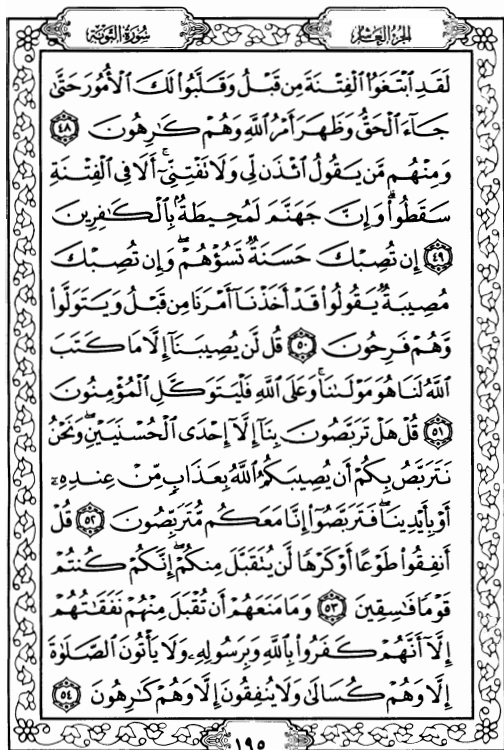 سُورَةُ التَّوْبَةِ
الجُزءُ العَاشِرُ
لَقَدِ ٱبْتَغَوُا۟ ٱلْفِتْنَةَ مِن قَبْلُ وَقَلَّبُوا۟ لَكَ ٱلْأُمُورَ حَتَّىٰ
جَآءَ ٱلْحَقُّ وَظَهَرَ أَمْرُ ٱللَّهِ وَهُمْ كَـٰرِهُونَ ٤٨
وَمِنْهُم مَّن يَقُولُ ٱئْذَن لِّى وَلَا نَفْتِنِّىٓ ۚ أَلَا فِى ٱلْفِتْنَةِ
سَقَطُوا۟ ۗ وَإِنَّ جَهَنَّمَ لَمُحِيطَةٌۢ بِٱلْكَـٰفِرِينَ
٤٩ إِن تُصِبْكَ حَسَنَةٌ تَسُؤْهُمْ ۖ وَإِن تُصِبْكَ
مُصِيبَةٌ يَقُولُوا۟ قَدْ أَخَذْنَآ أَمْرَنَا مِن قَبْلُ وَيَتَوَلَّوا۟
وَّهُمْ فَرِحُونَ ٥٠ قُل لَّن يُصِيبَنَآ إِلَّا مَا كَتَبَ
ٱللَّهُ لَنَا هُوَ مَوْلَىٰنَا ۚ وَعَلَى ٱللَّهِ فَلْيَتَوَكَّلِ ٱلْمُؤْمِنُونَ
٥١ قُلْ هَلْ تَرَبَّصُونَ بِنَآ إِلَّآ إِحْدَى ٱلْحُسْنَيَيْنِ ۖ وَنَحْنُ
نَتَرَبَّصُ بِكُمْ أَن يُصِيبَكُمُ ٱللَّهُ بِعَذَابٍ مِّنْ عِندِهِۦٓ
أَوْ بِأَيْدِينَا ۖ فَتَرَبَّصُوٓا۟ إِنَّا مَعَكُم مُّتَرَبِّصُونَ ٥٢ قُلْ
أَنفِقُوا۟ طَوْعًا أَوْ كَرْهًا لَّن يُتَقَبَّلَ مِنكُمْ ۖ إِنَّكُمْ كُنتُمْ
قَوْمًا فَـٰسِقِينَ ٥٣ وَمَا مَنَعَهُمْ أَن تُقْبَلَ مِنْهُمْ نَفَقَـٰتُهُمْ
إِلَّآ أَنَّهُمْ كَفَرُوا۟ بِٱللَّهِ وَبِرَسُولِهِۦ وَلَا يَأْتُونَ ٱلصَّلَوٰةَ
إِلَّا وَهُمْ كُسَالَىٰ وَلَا يُنفِقُونَ إِلَّا وَهُمْ كَـٰرِهُونَ ٥٤
١٩٥